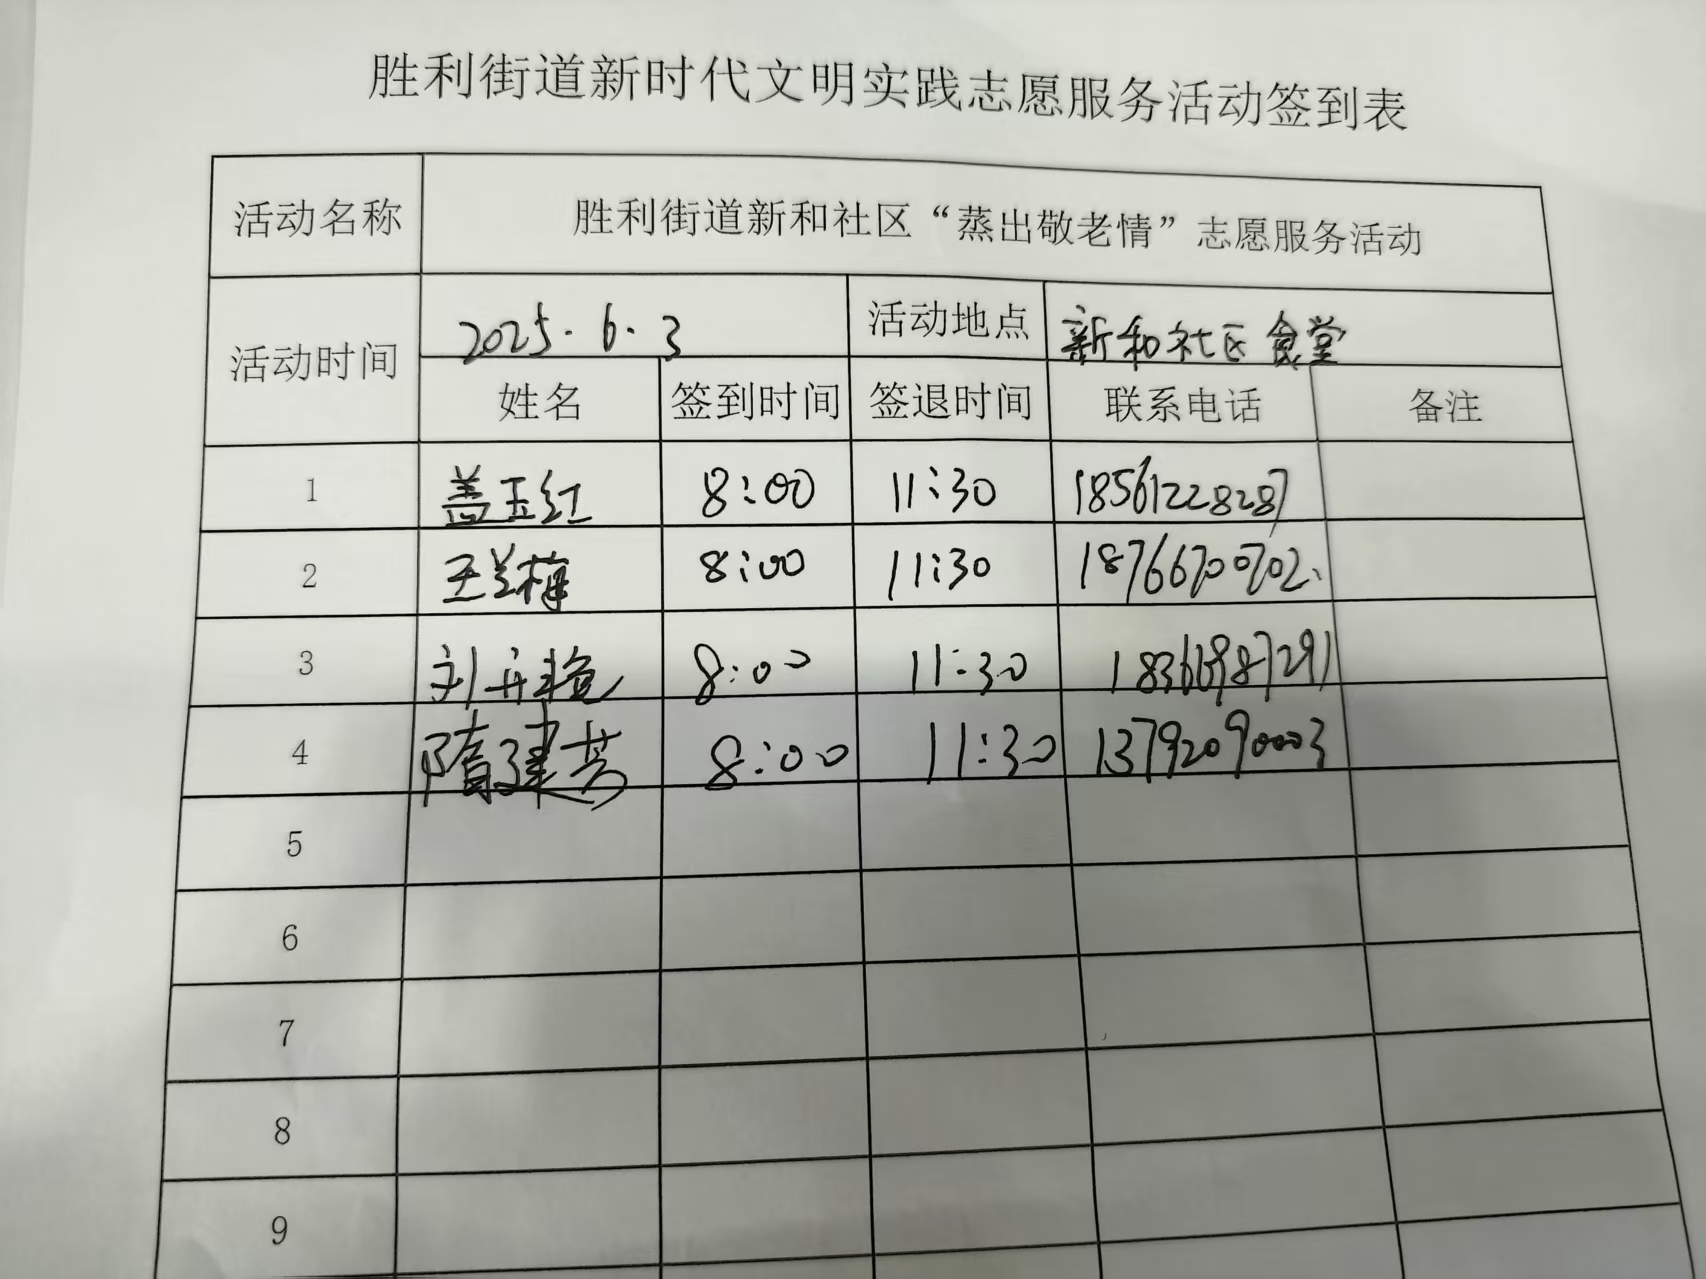 胜利街道新时代文明实践志愿服务活动签到表
活动名称 胜利街道新和社区“蒸出敬老情”志愿服务活动
活动时间 2025.6.3 活动地点 新和社区食堂
姓名 签到时间 签退时间 联系电话 备注
1 盖玉红 8:00 11:30 18561228287
2 王兰梅 8:00 11:30 18766700702
3 刘丹艳 8:00 11:30 18366987291
4 隋建芳 8:00 11:30 13792090003
5
6
7
8
9